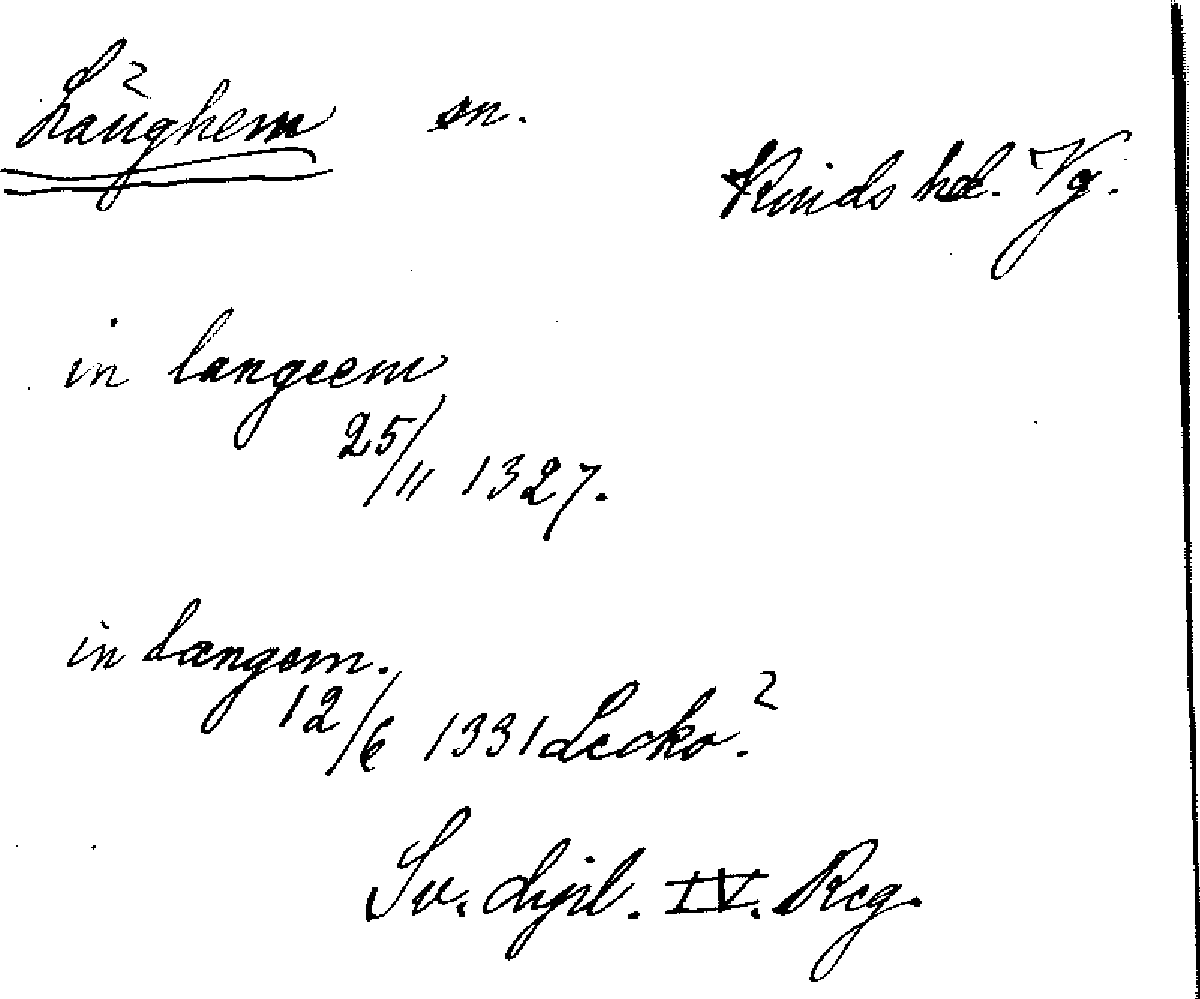 Långhem sn.
Kinds hd. Vg.
in langeem
25/11 1327.
in Langem.
12/6 1331 Lecko.²
Sv. dipl. IV. Reg.